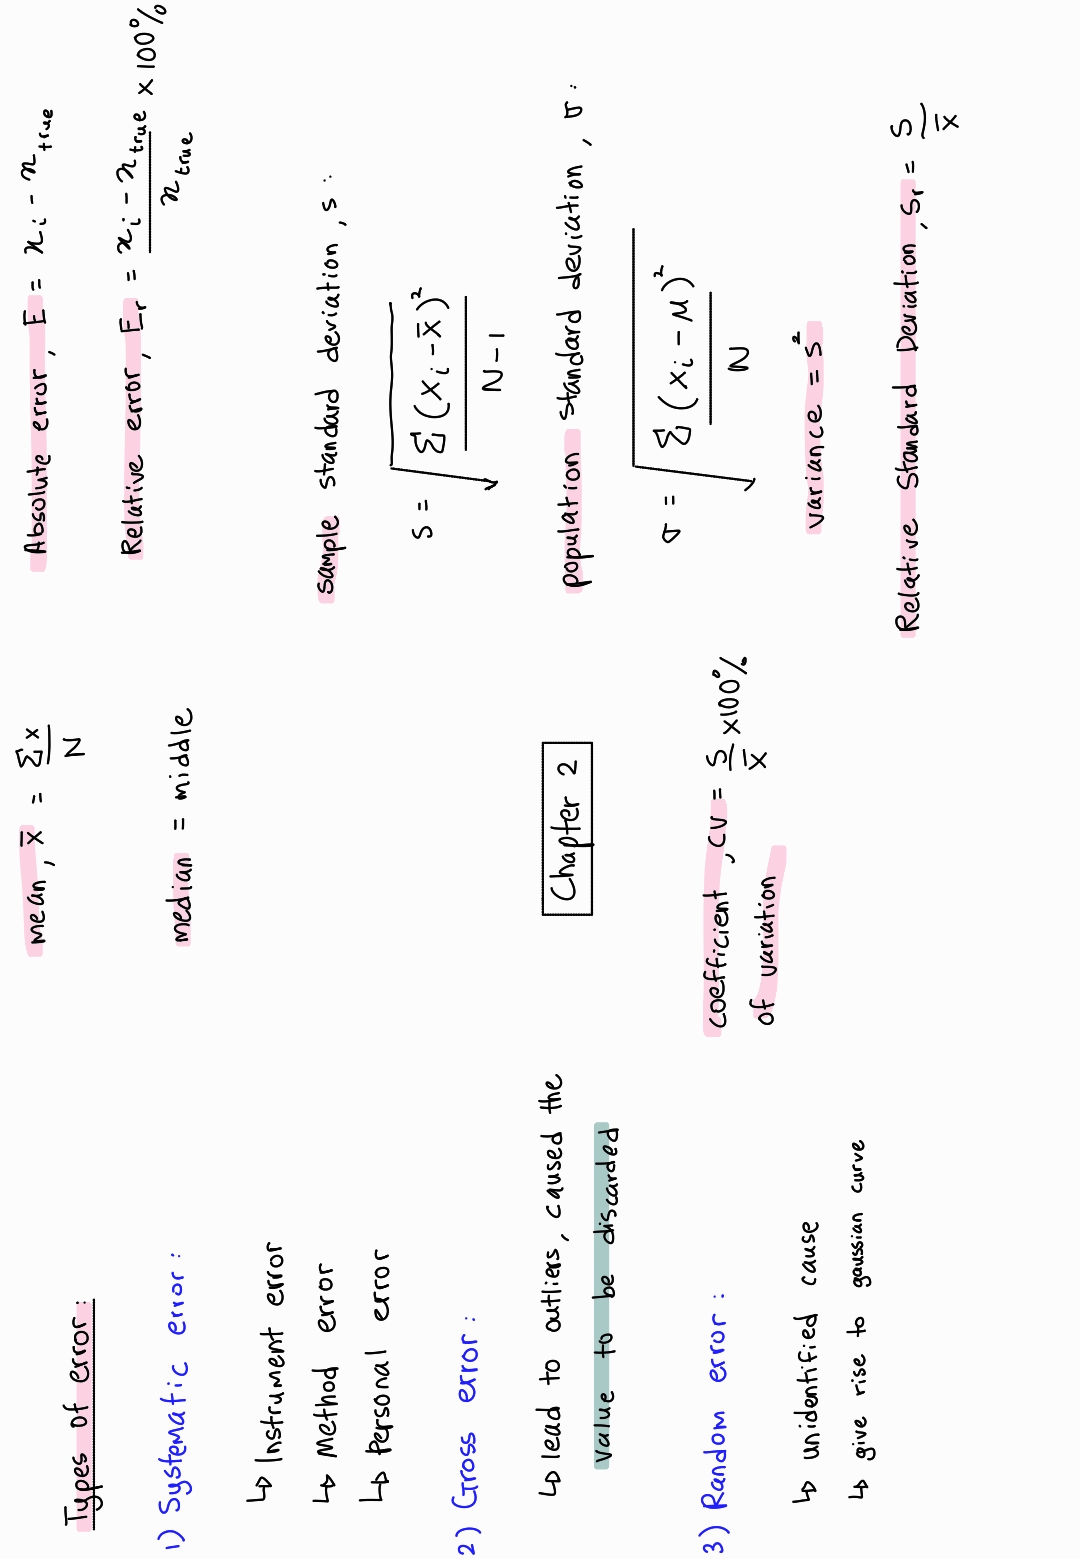 Types of error:
1) Systematic error:
↳ Instrument error
↳ Method error
↳ Personal error
2) Gross error:
↳ lead to outliers, caused the
value to be discarded
3) Random error:
↳ unidentified cause
↳ give rise to gaussian curve
mean, x̄ = Σx / N
median = middle
Chapter 2
coefficient, CV = S / x̄ ×100%
of variation
Absolute error, E = xᵢ - x true
Relative error, Eᵣ = xᵢ - x true / x true × 100%
sample standard deviation, s:
S = √ Σ(xᵢ - x̄)² / N-1
population standard deviation, σ:
σ = √ Σ(xᵢ - μ)² / N
variance = s²
Relative Standard Deviation, Sᵣ = S / x̄